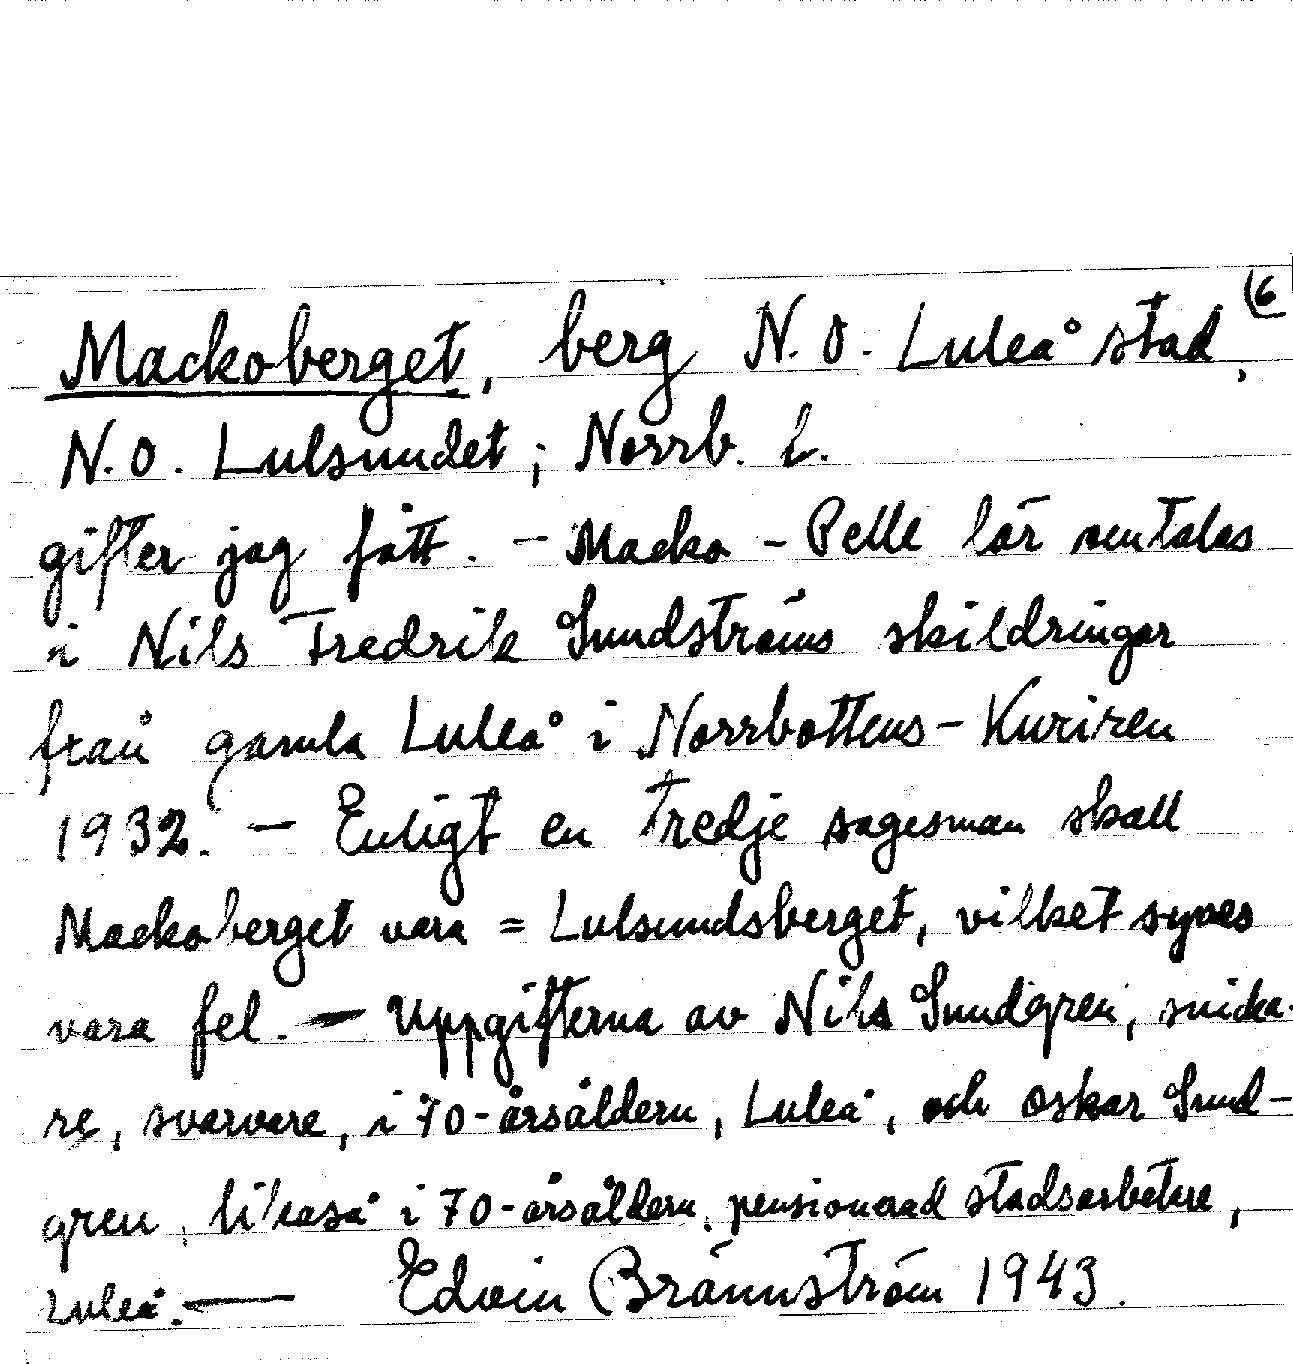 (6
Mackoberget, berg N.O. Luleå stad,
N.O. Lulsundet; Norrb. l.
gifter jag fått. – Macko - Pelle lär omtalas
i Nils Fredrik Sundströms skildringar
från gamla Luleå i Norrbottens-Kuriren
1932. – Enligt en tredje sagesman skall
Mackoberget vara = Lulsundsberget, vilket synes
vara fel. – Uppgifterna av Nils Sundgren, snicka-
re, svarvare, i 70-årsåldern, Luleå, och Oskar Sund-
gren, likaså i 70-årsåldern, pensionerad stadsarbetare,
Luleå. — Edvin Brännström 1943.